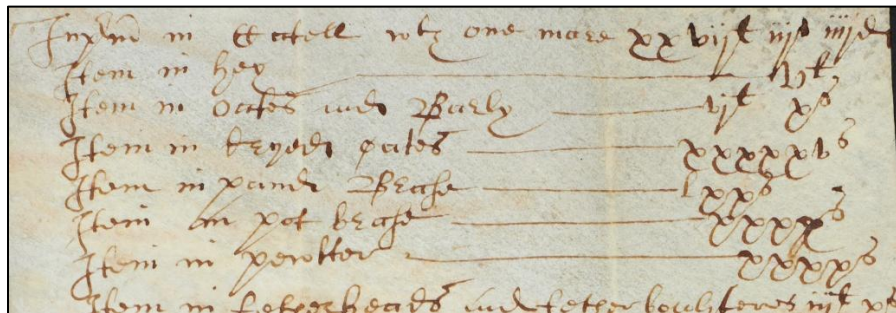 Inp'm in Cattell wth one mare xxviijl iijs iiijd
Item in hey vl
Item in oates and Barly vjl xs
Item in dryed oates xxxxxvs
Item in pannd Brasse lxxs
Item in pot brasse xxxxs
Item in pewtter xxxxs
Item in fetherbeads and fether boulsteres iijl xs